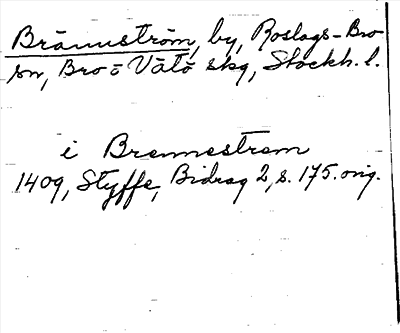 Brännström, by, Roslags-Bro
sn, Bro o Vätö skg, Stockh. l.
i Brennestrom
1409, Styffe, Bidrag 2, s. 175. orig.